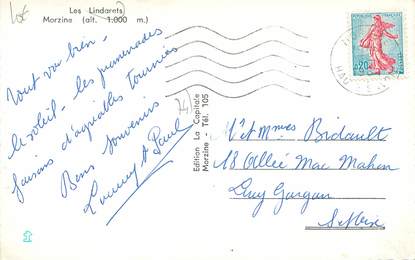 Les Lindarets
Morzine (alt. 1.000 m.)
Tout va bien -
le soleil - les promenades
faisons d'agréables tournées
Bons souvenirs
et Paul
Edition La Capitale
Morzine Tél. 105
0,20
Mr et Mmes Bidault
18 Allée Mac Mahon
Livry Gargan
S. et Oise